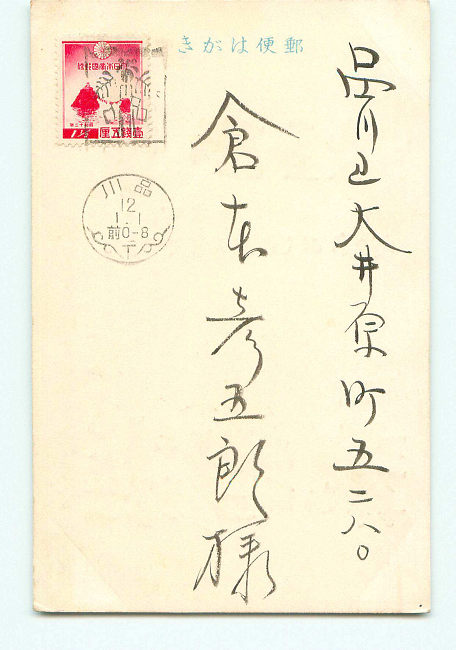 郵便はがき
品川区大井原町五二八〇
倉本彦五郎様
大日本帝國郵便
壹錢五厘
1½
品川
12
1.1
前0-8